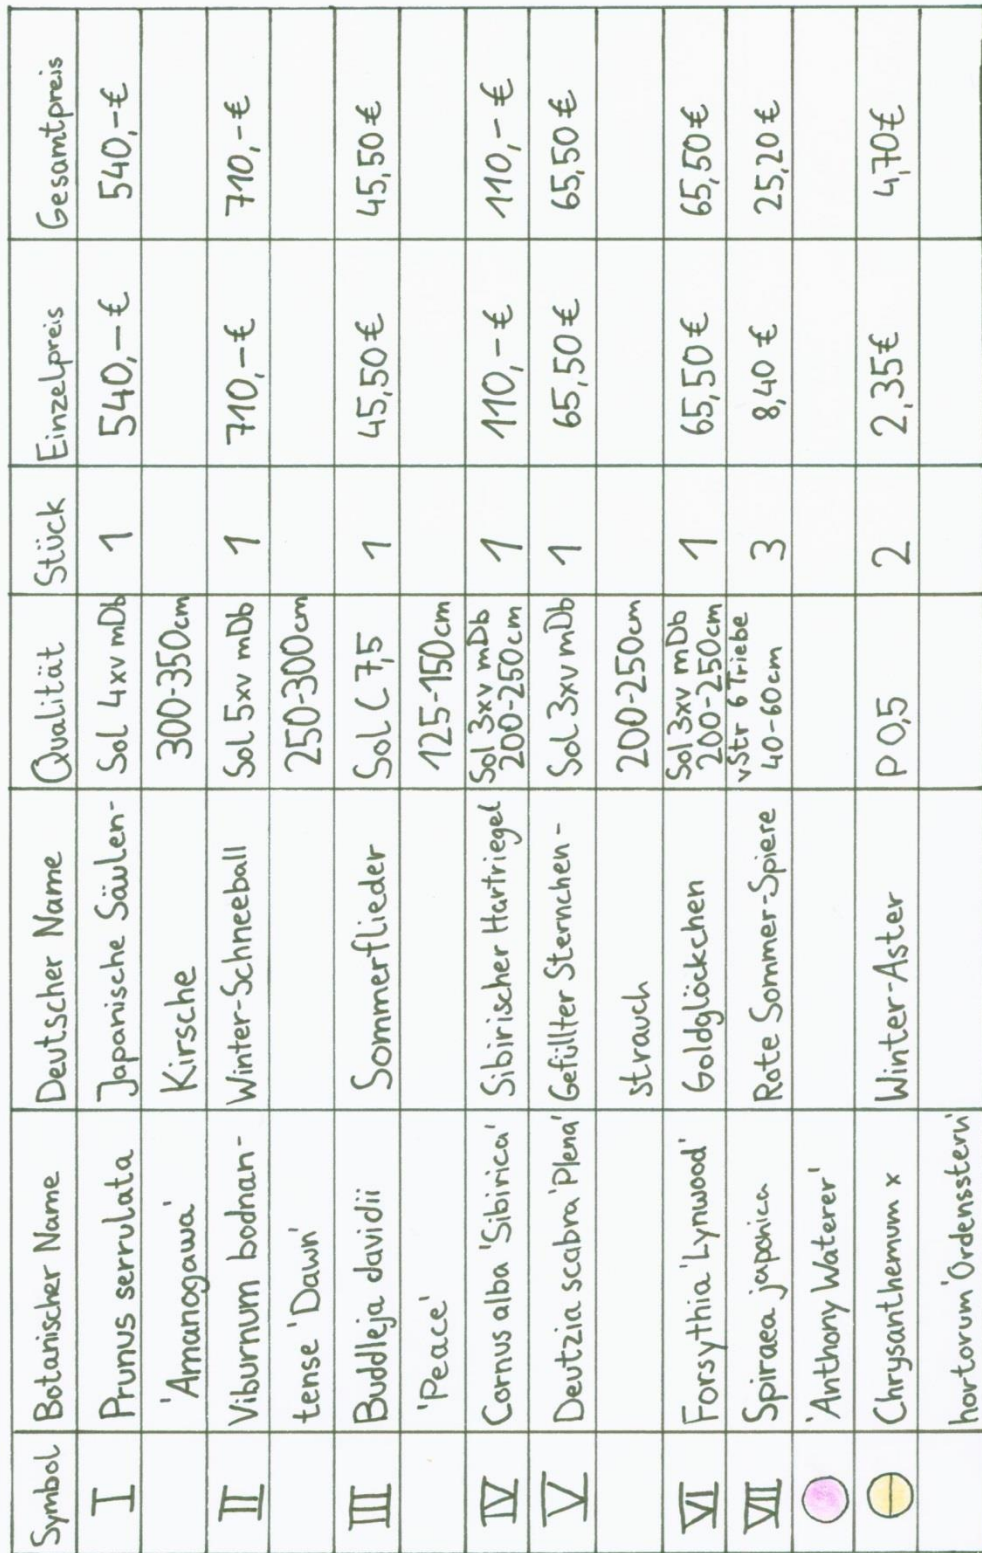 Symbol Botanischer Name Deutscher Name Qualität Stück Einzelpreis Gesamtpreis
I Prunus serrulata Japanische Säulen- Sol 4xv mDb 1 540,-€ 540,-€
'Amanogawa' Kirsche 300-350cm
II Viburnum bodnan- Winter-Schneeball Sol 5xv mDb 1 710,-€ 710,-€
tense 'Dawn' 250-300cm
III Buddleja davidii Sommerflieder Sol C 7,5 1 45,50€ 45,50€
'Peace' 125-150cm
IV Cornus alba 'Sibirica' Sibirischer Hartriegel Sol 3xv mDb 1 110,-€ 110,-€
200-250cm
V Deutzia scabra 'Plena' Gefüllter Sternchen- Sol 3xv mDb 1 65,50€ 65,50€
strauch 200-250cm
VI Forsythia 'Lynwood' Goldglöckchen Sol 3xv mDb 1 65,50€ 65,50€
200-250cm
VII Spiraea japonica Rote Sommer-Spiere vStr 6 Triebe 3 8,40€ 25,20€
40-60cm
'Anthony Waterer'
Chrysanthemum x Winter-Aster P 0,5 2 2,35€ 4,70€
hortorum 'Ordensstern'